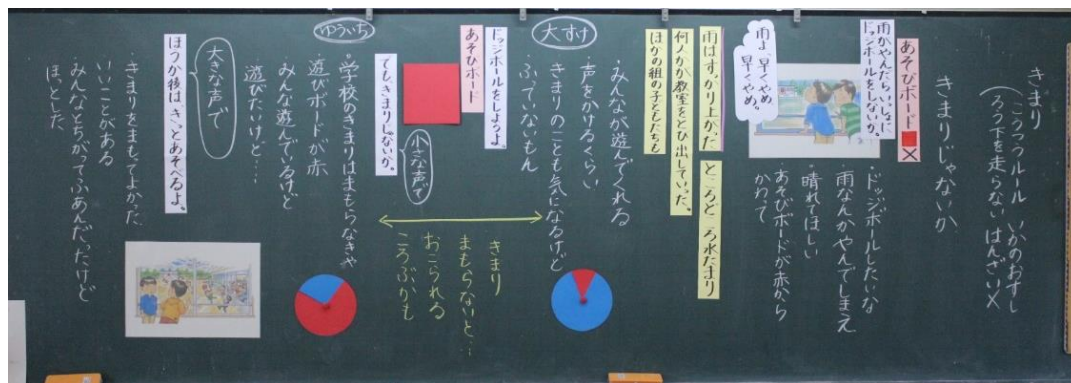 きまり
こうつうルール いかのおすし
ろう下を走らない はんざい×
きまりじゃないか
あそびボード ×
雨がやんだら、いっしょに
ドッジボールをしないか。
雨よ、早くやめ、
早くやめ。
・ドッジボールしたいな
雨なんかやんでしまえ
晴れてほしい
あそびボードが赤から
かわって
雨はすっかり上がった
ところどころ水たまり
何人かが教室をとび出していった。
ほかの組の子どもたちも
大すけ
・みんなが遊んでくれる
・声をかけるくらい
きまりのことも気になるけど
ふっていないもん
ドッジボールをしようよ。
あそびボード
小さな声で
でも、きまりじゃないか。
きまり
まもらないと…
おこられる
ころぶかも
ゆういち
学校のきまりはまもらなきゃ
遊びボードが赤
みんな遊んでいるけど
遊びたいけど…
大きな声で
ほうか後は、きっとあそべるよ。
・きまりをまもってよかった
いいことがある
・みんなとちがってふあんだったけど
ほっとした